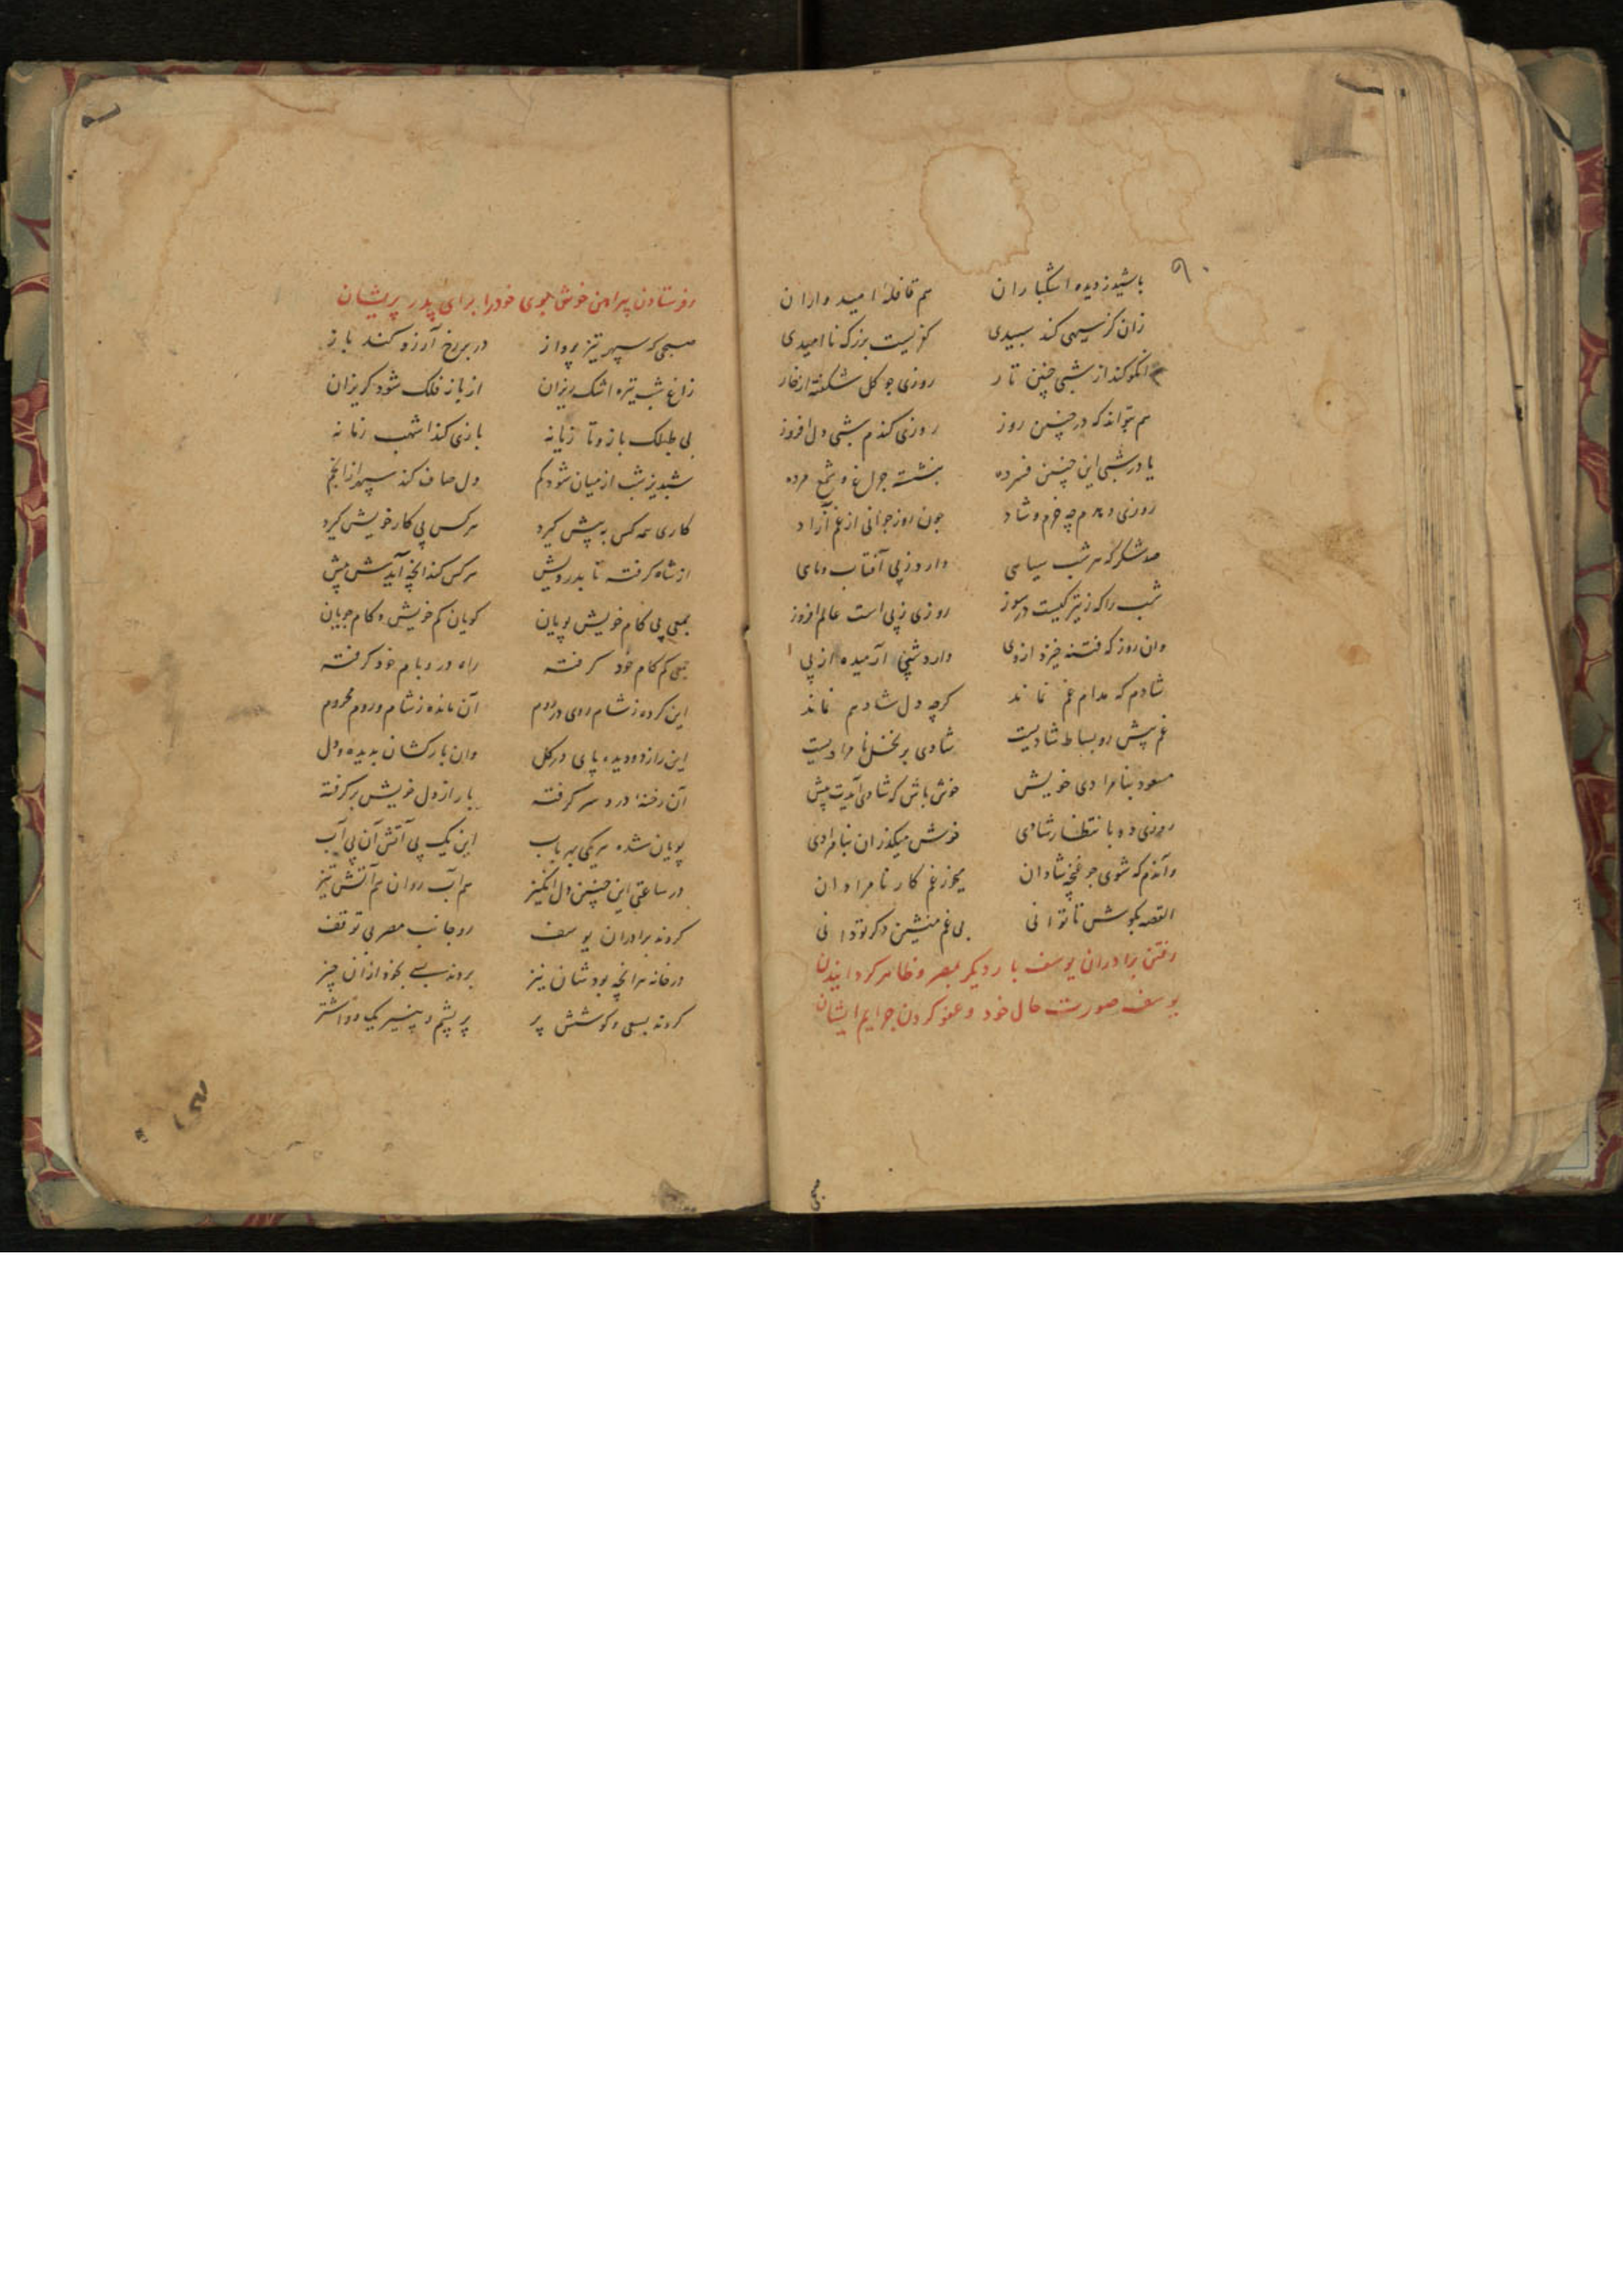 ۹۰
باشید ز دیده اشکباران هم قافلهٔ امیدواران
زان کز سیهی کند سپیدی کفریست بزرک ناامیدی
انکو کند از شبی چنین تار روزی جو کل شکفته از خار
هم تواند که در چنین روز روزی کندم شبی دل افروز
یا در شبی این چنین فسرده بنشسته جراغ و شمع مرده
روزی دهدم چه خرم و شاد جون روز جوانی از غم آزاد
صد شکر که هر شب سیاهی دارد ز پی آفتاب و ماهی
شب را که ز تیرکیست در سوز روزی ز پی است عالم افروز
وان روز که فتنه خیزد از وی دارد شبی آرمیده از پی
شادم که مدام غم نماند کرچه دل شاد هم نماند
غم پیش رو بساط شادیست شادی بر نخل نامرادیست
مسعود بنامرادی خویش خوش باش که شادی آیدت پیش
روزی دو با نتظار شادی خوش میکذران بنامرادی
وآندم که شوی جو غنچه شادان میخور غم کار نامرادان
القصه بکوش تا توانی بی غم منشین دکر تو دانی
رفتن برادران یوسف بار دیکر بمصر و ظاهر کردانیدن
یوسف صورت حال خود و عفو کردن جرایم ایشان
فرستادن پیراهن خوش بوی خود را برای پدر پریشان
صبحی که سپهر تیز پرواز در بر رخ آرزو کند باز
زاغ شب تیره اشک ریزان از باز فلک شود کریزان
بی طبلک باز و تا زیانه بازی کند اشهب زمانه
شبدیز شب از میان شود کم دل صاف کند سپهر از انجم
کاری همه کس به پیش کیرد هر کس پی کار خویش کیرد
از شاه کرفته تا بدرویش هر کس کند انچه آیدش پیش
جمعی پی کام خویش پویان کویان کم خویش و کام جویان
جمعی کم کام خود کرفته راه در و بام خود کرفته
این کرده ز شام روی در روم آن مانده ز شام و روم محروم
این را ز دو دیده پای در کل وان بارکشان بدیده و دل
آن رخنهٔ درد سر کرفته بار از دل خویش بر کرفته
پویان شده هر یکی بهر باب این یک پی آتش آن پی آب
در ساعتی این چنین دل انکیز هم آب روان هم آتش تیز
کردند برادران یوسف رو جانب مصر بی توقف
در خانه هر انچه بودشان نیز بردند بسی بخود از ان چیز
کردند بسعی و کوشش پر پر پشم و پنیر یک دو اشتر